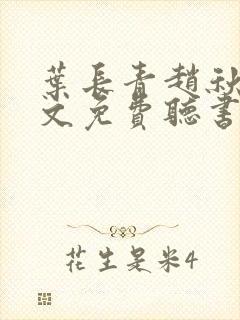 葉長青趙秋
文免費聽書
花生是米4